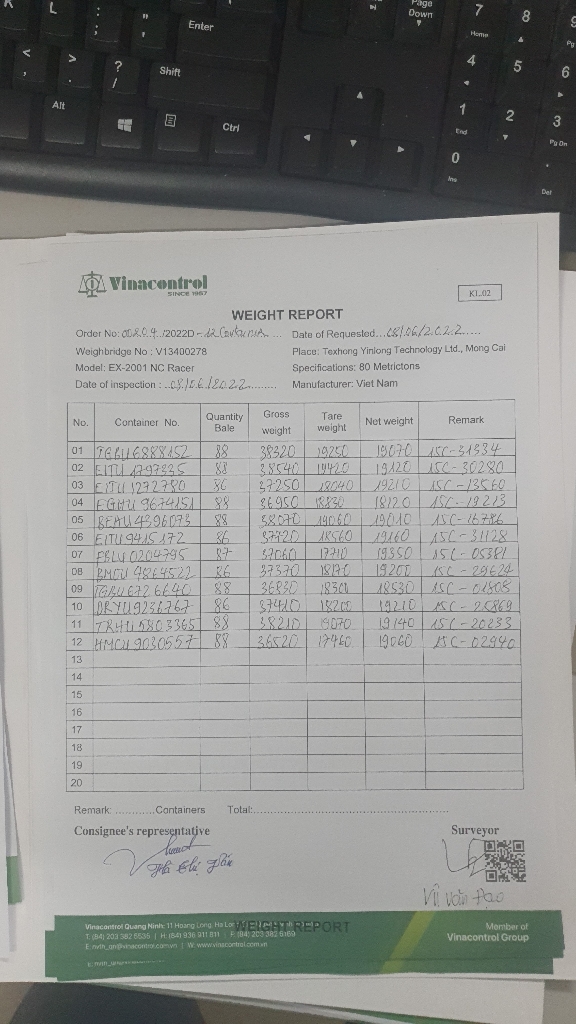 L
Enter
Page
Down
7
Home
8
9
Pg
Shift
4
5
6
Alt
Ctrl
1
End
2
3
Pg Dn
0
Ins
Del
Vinacontrol
SINCE 1957
KL.02
WEIGHT REPORT
Order No: /2022D - 12 Date of Requested...08/06/2022.....
Weighbridge No : V13400278 Place: Texhong Yinlong Technology Ltd., Mong Cai
Model: EX-2001 NC Racer Specifications: 80 Metrictons
Date of inspection : ..08/06/2022......... Manufacturer: Viet Nam
No. Container No. Quantity Bale Gross weight Tare weight Net weight Remark
01 TGBU6888152 88 38320 19250 19070 15C-31334
02 EITU 1797335 88 38540 19420 19120 15C-30280
03 EITU 1272780 86 37250 18040 19210 15C-13560
04 EGHU 9674151 88 36950 18830 18120 15C-19213
05 BEAU 4396073 88 38070 19060 19010 15C-16786
06 EITU9415172 86 37720 18560 19160 15C-31128
07 0204795 87 37060 17710 19350 15C-05381
08 BMOU 4864522 86 37370 18170 19200 15C-29624
09 TGBU6726640 88 36830 18300 18530 15C-01808
10 DRYU9236767 86 37410 18200 19210 15C-25869
11 TRHU5803365 88 38210 19070 19140 15C-20233
12 HMCU 9030557 88 36520 17460 19060 15C-02940
13
14
15
16
17
18
19
20
Remark: ...........Containers Total:..................................................
Consignee's representative Surveyor
Vũ Văn Đạo
Vinacontrol Quang Ninh: 11 Hoang Long, Ha Long
WEIGHT REPORT
T: (84) 203 382 5535 | H: (84) 936 911 811 | F: (84) 203 382 6169
E: nvth_qn@vinacontrol.com.vn | W: www.vinacontrol.com.vn
Member of
Vinacontrol Group